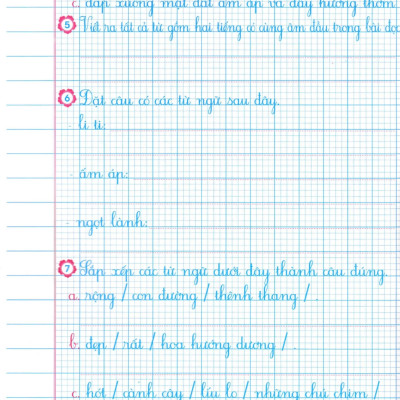 c. đáp xuống mặt đất ấm áp và đầy hương thơm
5 Viết ra tất cả từ gồm hai tiếng có cùng âm đầu trong bài đọc
6 Đặt câu có các từ ngữ sau đây.
- li ti:
- ấm áp:
- ngọt lành:
7 Sắp xếp các từ ngữ dưới đây thành câu đúng.
a. rộng / con đường / thênh thang / .
b. đẹp / rất / hoa hướng dương / .
c. hót / cành cây / líu lo / những chú chim /